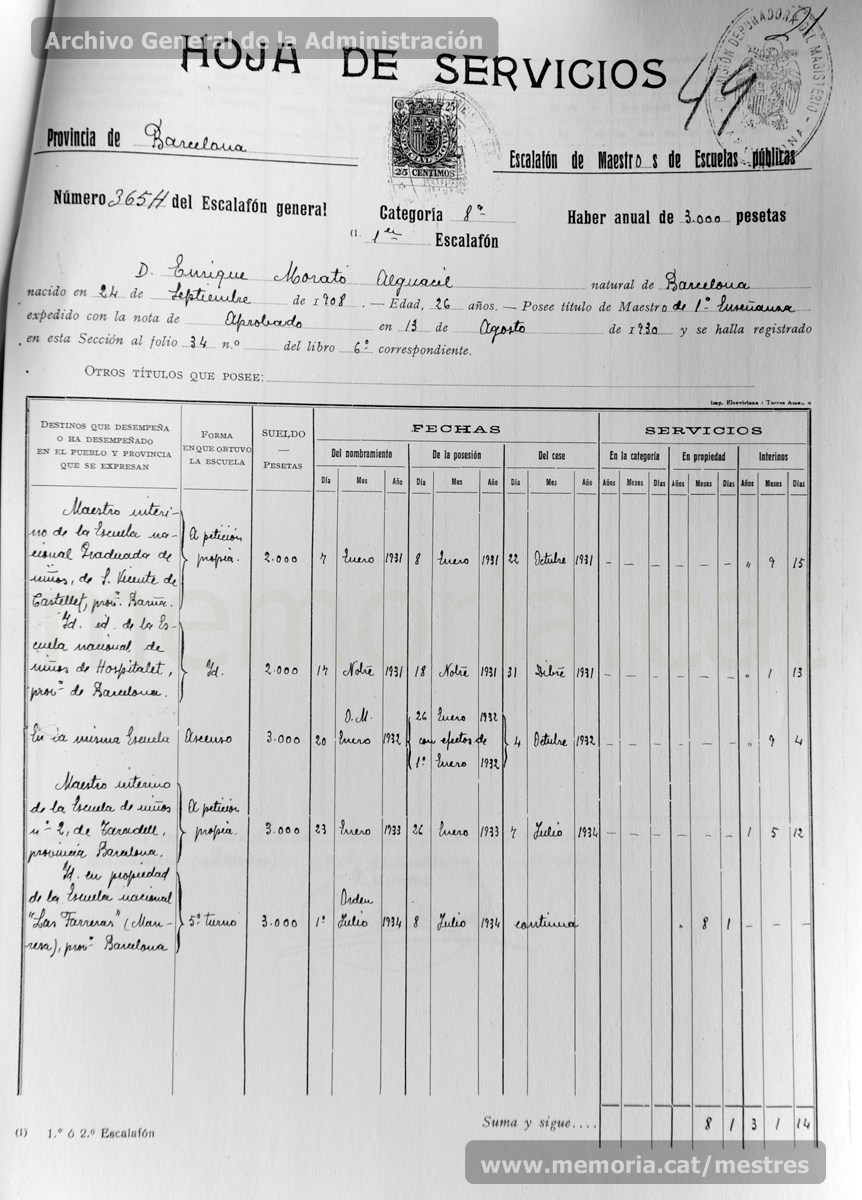 Archivo General de la Administración
HOJA DE SERVICIOS
49
COMISIÓN DEPURADORA DEL MAGISTERIO
Provincia de Barcelona
25 CENTIMOS
Escalafón de Maestros de Escuelas públicas
Número 365H del Escalafón general
Categoría 8ª
Haber anual de 3.000 pesetas
(1. 1er Escalafón
D. Enrique Morató Alguacil natural de Barcelona
nacido en 24 de Septiembre de 1908. — Edad, 26 años. — Posee título de Maestro de 1ª Enseñanza
expedido con la nota de Aprobado en 13 de Agosto de 1930 y se halla registrado
en esta Sección al folio 34 n.º del libro 6º correspondiente.
OTROS TÍTULOS QUE POSEE:
Imp. Elzeviriana : Torres Amat,
DESTINOS QUE DESEMPEÑA
O HA DESEMPEÑADO
EN EL PUEBLO Y PROVINCIA
QUE SE EXPRESAN
FORMA
EN QUE OBTUVO
LA ESCUELA
SUELDO
—
PESETAS
FECHAS
SERVICIOS
Del nombramiento De la posesión Del cese En la categoría En propiedad Interinos
Día Mes Año Día Mes Año Día Mes Año Años Meses Días Años Meses Días Años Meses Días
Maestro interi-
no de la Escuela na-
cional Graduada de
niños, de S. Vicente de
Castellet, provª. Barna.
A petición
propia.
2.000 7 Enero 1931 8 Enero 1931 22 Octubre 1931 - - - - - - " 9 15
Id. id. de la Es-
cuela nacional de
niños de Hospitalet,
provª de Barcelona.
Id.
2.000 17 Nobre 1931 18 Nobre 1931 31 Dibre 1931 - - - - - - " 1 13
En la misma Escuela Ascenso 3.000
O.M.
20 Enero 1932
26 Enero 1932
con efectos de
1º Enero 1932
4 Octubre 1932 - - - - - - " 9 4
Maestro interino
de la Escuela de niños
nº 2, de Taradell,
provincia Barcelona.
A petición
propia.
3.000 23 Enero 1933 26 Enero 1933 7 Julio 1934 - - - - - - 1 5 12
Id. en propiedad
de la Escuela nacional
"Las Farreras" (Man-
resa), provª Barcelona
5º turno 3.000
Orden
1º Julio 1934 8 Julio 1934 continua " 8 1 - - -
Suma y sigue.... 8 1 3 1 14
(1) 1.º ó 2.º Escalafón
www.memoria.cat/mestres
memoria.cat